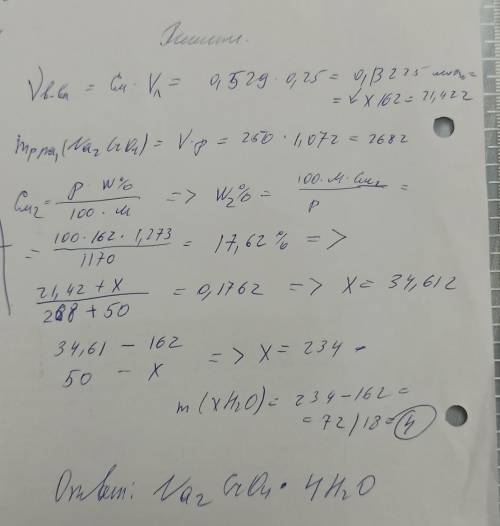 Решение.
νв-ва = См · Vл = 0,529 · 0,25 = 0,13225 моль =
= × 162 = 21,422
mр-ра (Na2CrO4) = V·ρ = 250 · 1,072 = 268г
См2 = ρ · W% / 100 · М => W2% = 100 · М · См2 / ρ =
= 100 · 162 · 1,273 / 1170 = 17,62 % =>
21,42 + x / 268 + 50 = 0,1762 => x = 34,61г
34,61 – 162
50 – x => x = 234
m (xH2O) = 234 – 162 =
= 72/18 = 4
Ответ: Na2CrO4 · 4H2O